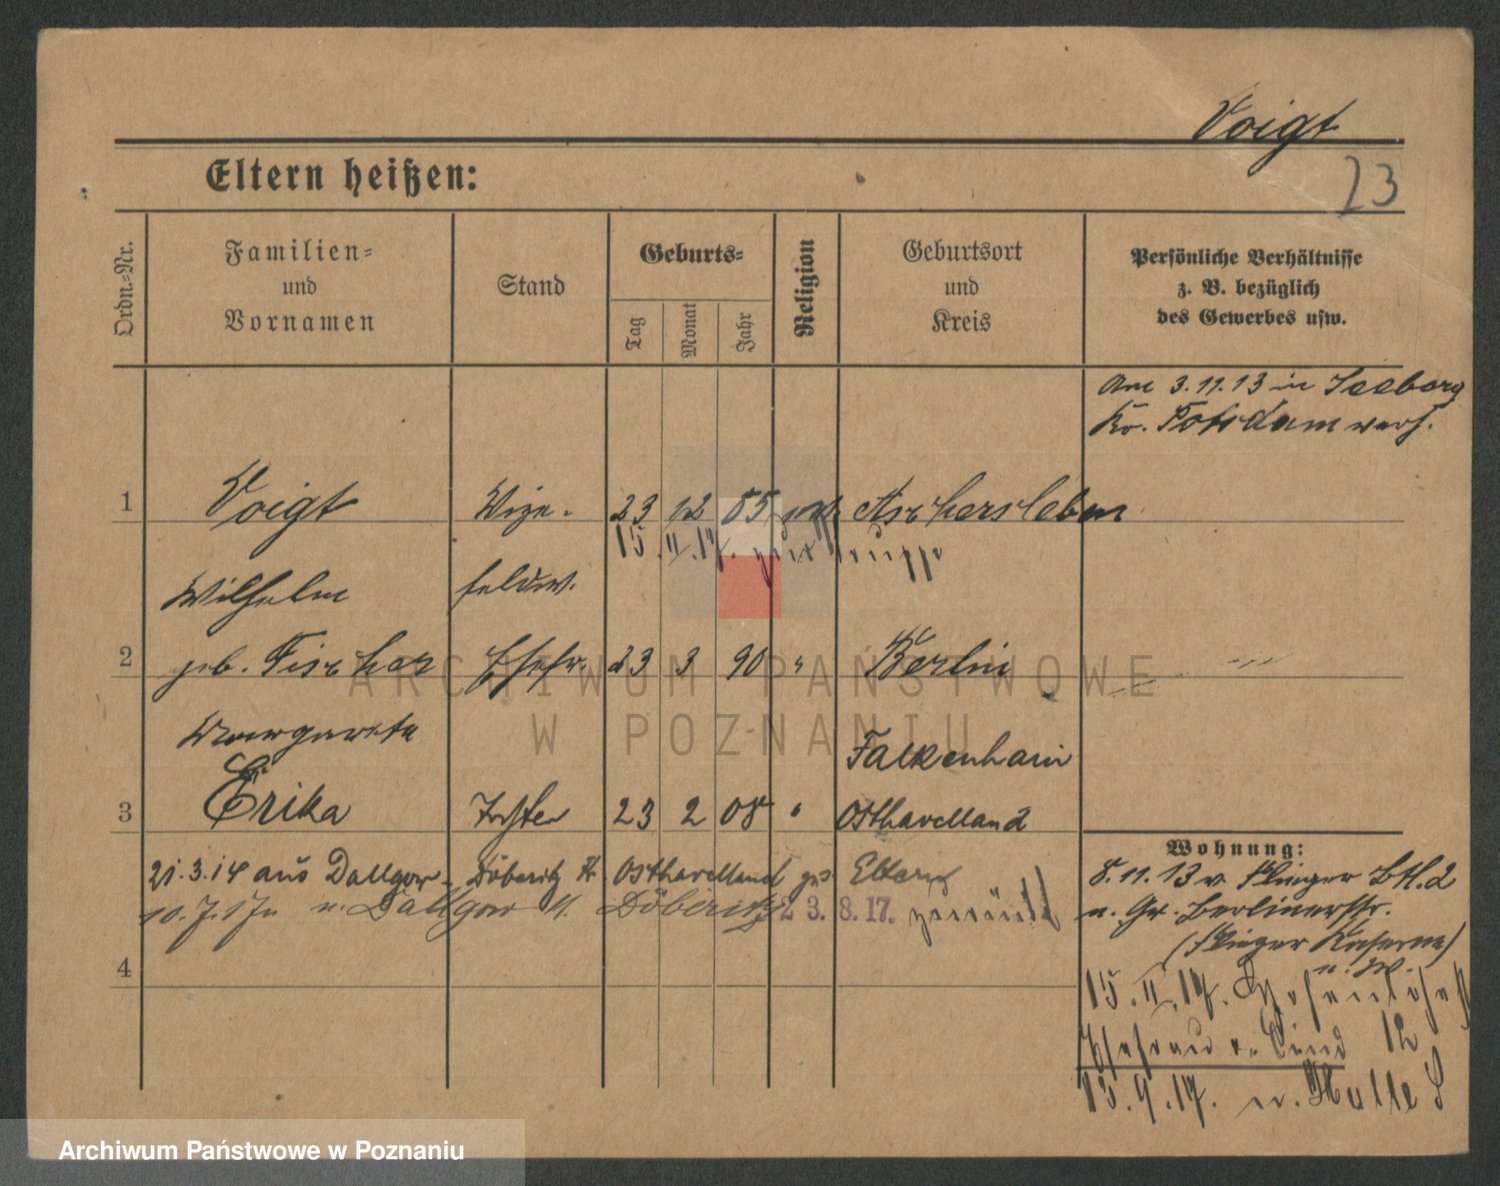 Voigt
23
Eltern heißen:
Ordn.-Nr.
Familien-
und
Vornamen
Stand
Geburts-
Tag
Monat
Jahr
Religion
Geburtsort
und
Kreis
Persönliche Verhältnisse
z. B. bezüglich
des Gewerbes usw.
Am 3.11.13 in Seeborg
Kr. Potsdam verh.
1 Voigt Vize- 23 12 85 Aschersleben
15.II.17.
Wilhelm feldw.
2 geb. Fischer Ehefr. 23 3 90 " Berlin
Margarete
Falkenhain
3 Erika Tochter 23 2 08 " Osthavelland
Wohnung:
21.3.14 aus Dallgow- Döberitz Kr. Osthavelland Eltern
8.11.13 v. Flieger Btl. 2
v. Dallgow Döberitz 23.8.17. zurück
n. Gr. Berlinerstr.
(Flieger Kaserne)
4
15.II.17.
Ehefrau u. Kind 12
13.9.17. n. Halle S
ARCHIWUM PAŃSTWOWE
W POZNANIU
Archiwum Państwowe w Poznaniu